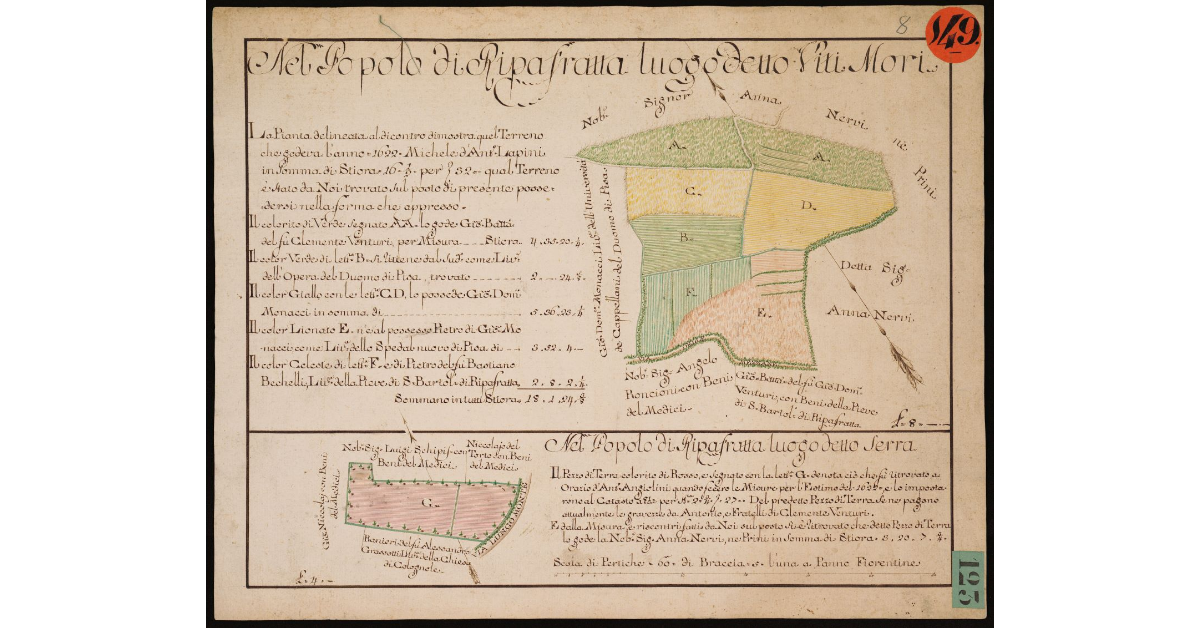 8
149.
Nel Popolo di Ripafratta luogo detto Viti Mori.
La Pianta delineata al di contro dimostra quel Terreno
che godeva l'anno 1622. Michele d'Ant.° Lapini
in somma di Stiora 16 per 32 qual Terreno
è stato da Noi trovato sul posto di presente posse-
dersi nella forma che appresso.
Il colorito di Verde segnato A.A. lo gode Gio: Batta
del fù Clemente Venturi, per Misura Stiora
Il color Verde di lett.ª B. si ritiene dal Sud.° come Liv.°
dell'Opera del Duomo di Pisa, trovato
Il color Giallo con le lett.e C.D. lo possiede Gio: Dom.°
Monacci in somma di
Il color Lionato E. n'è al possesso Pietro di Gio: Mo-
nacci come Liv.° dello Spedal nuovo di Pisa, di 3. 32. 4
Il color Celeste di lett.ª F. è di Pietro del fù Bastiano
Bechelli, Liv.° della Pieve di S. Bartol.° di Ripafratta 2. 8. 2
Sommano in tutti Stiora 18. 1. 24
Nob: Signor Anna Nervi nè Prini
A.
A.
C.
D.
B.
F.
E.
Gio: Dom.° Monacci Liv.° dell'Università
de Cappellani del Duomo di Pisa
Detta Sig.ª
Anna Nervi.
Nob: Sig: Angelo
Roncioni con Beni
del Medici.
Gio: Batta del fù Gio: Dom.°
Venturi, con Beni della Pieve
di S. Bartol: di Ripafratta
8
Nob: Sig: Luigi Schipis con
Beni del Medici
Niccolajo del
Torto con Beni
del Medici
Gio: Niccolaj con Beni
del Medici
G.
VIA LUNGO MONTE
Ranieri del fù Alessandro
Grassotti Liv.° della Chiesa
di Colognole.
4
Nel Popolo di Ripafratta luogo detto Serra
Il Pezzo di Terra colorito di Rosso, e segnato con la lett.ª G. denota ciò che fù ritrovato a
Orazio d'Ant.° Angiolini quando fecero le Misure per l'Estimo del 1622, e lo imposta-
rono al Catasto per 27 Del predetto Pezzo di Terra se ne pagano
attualmente le gravezze da Antonio, e Fratelli di Clemente Venturi.
E dalla Misura, e riscontri fatti da Noi sul posto si è ritrovato che detto Pezzo di Terra
lo gode la Nob: Sig: Anna Nervi, ne Prini in Somma di Stiora 3. 20. 7.
Scala di Pertiche 60. di Braccia 5. l'una a Panno Fiorentine
123